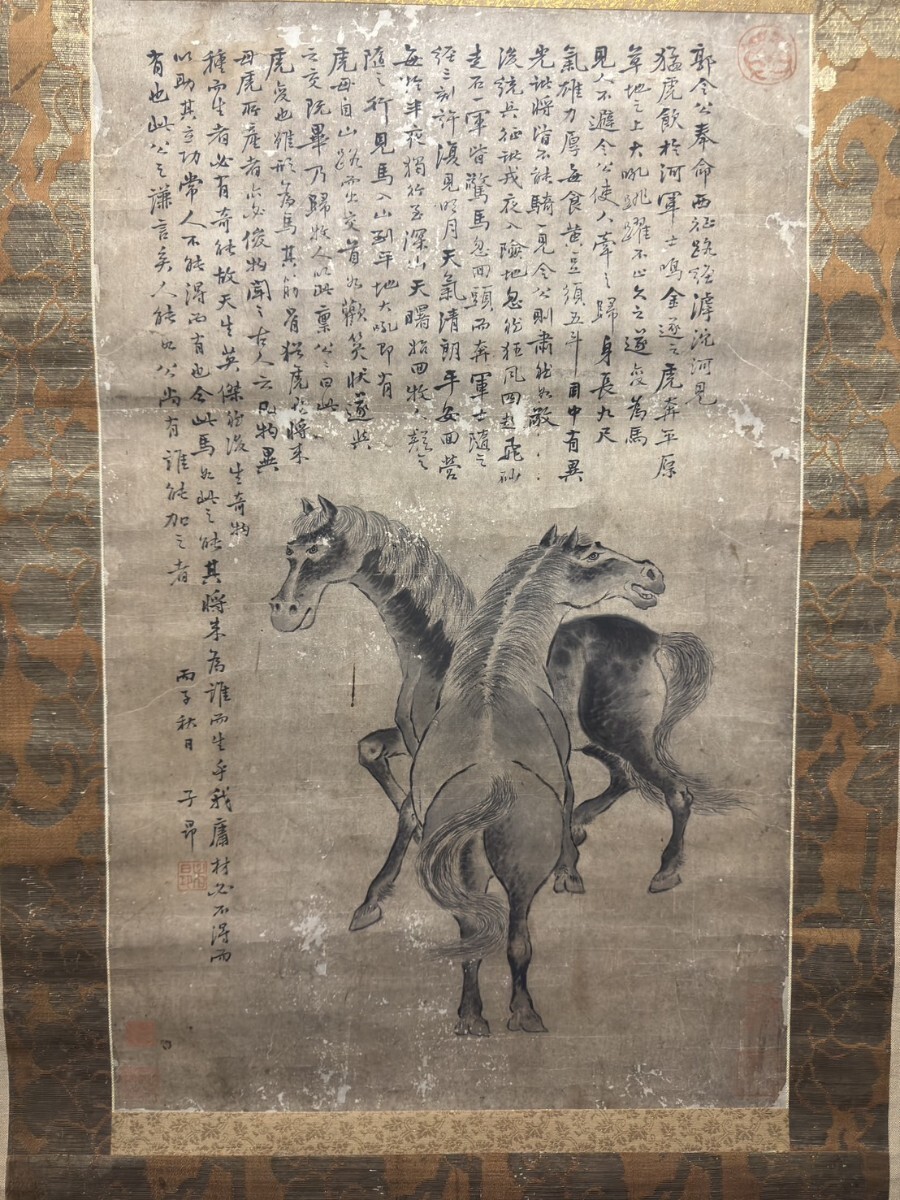 郭令公奉命西征路經滹沱河見
猛虎飲於河軍士鳴金逐之虎奔平原
草地之上大吼跳躍不止久之遂變為馬
見人不避令公使人牽之歸身長九尺
氣雄力厚每食黃豆須五斗目中有異
光諸將皆不能騎一見令公則肅然如敬
後統兵征訨戎夜入險地忽然狂風四起飛砂
走石一軍皆驚馬忽回頭而奔軍士隨之
經三刻許復見明月天氣清朗平安回營
每於半夜獨行至深山天曙始回牧人疑之
隨之行見馬入山到平地大吼即有
虎母自山谿而出交首如歡笑狀遂與
之交阮畢乃歸牧人以此稟公公曰此
虎變也雖形為馬其筋骨猶虎也將來
母虎所產者亦必俊物聞之古人云凡物異
種而生者必有奇能故天生英傑後生奇物
以助其立功常人不能得而有也今此馬如此之能其將來為誰而生乎我庸材必不得而
有也此公之謙言矣人能如公尚有誰能加之者
丙子秋日 子昂